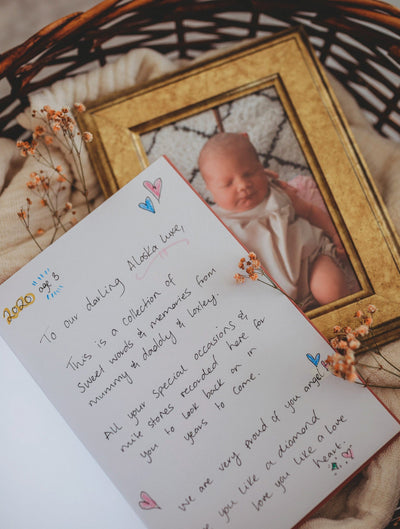 2020
age 3
To our darling Alaska Luxe,
This is a collection of
sweet words & memories from
mummy & daddy & loxley.
All your special occasions &
mile stones recorded here for
you to look back on in
years to come.
We are very proud of you angel
you like a diamond
love you like a love
heart.